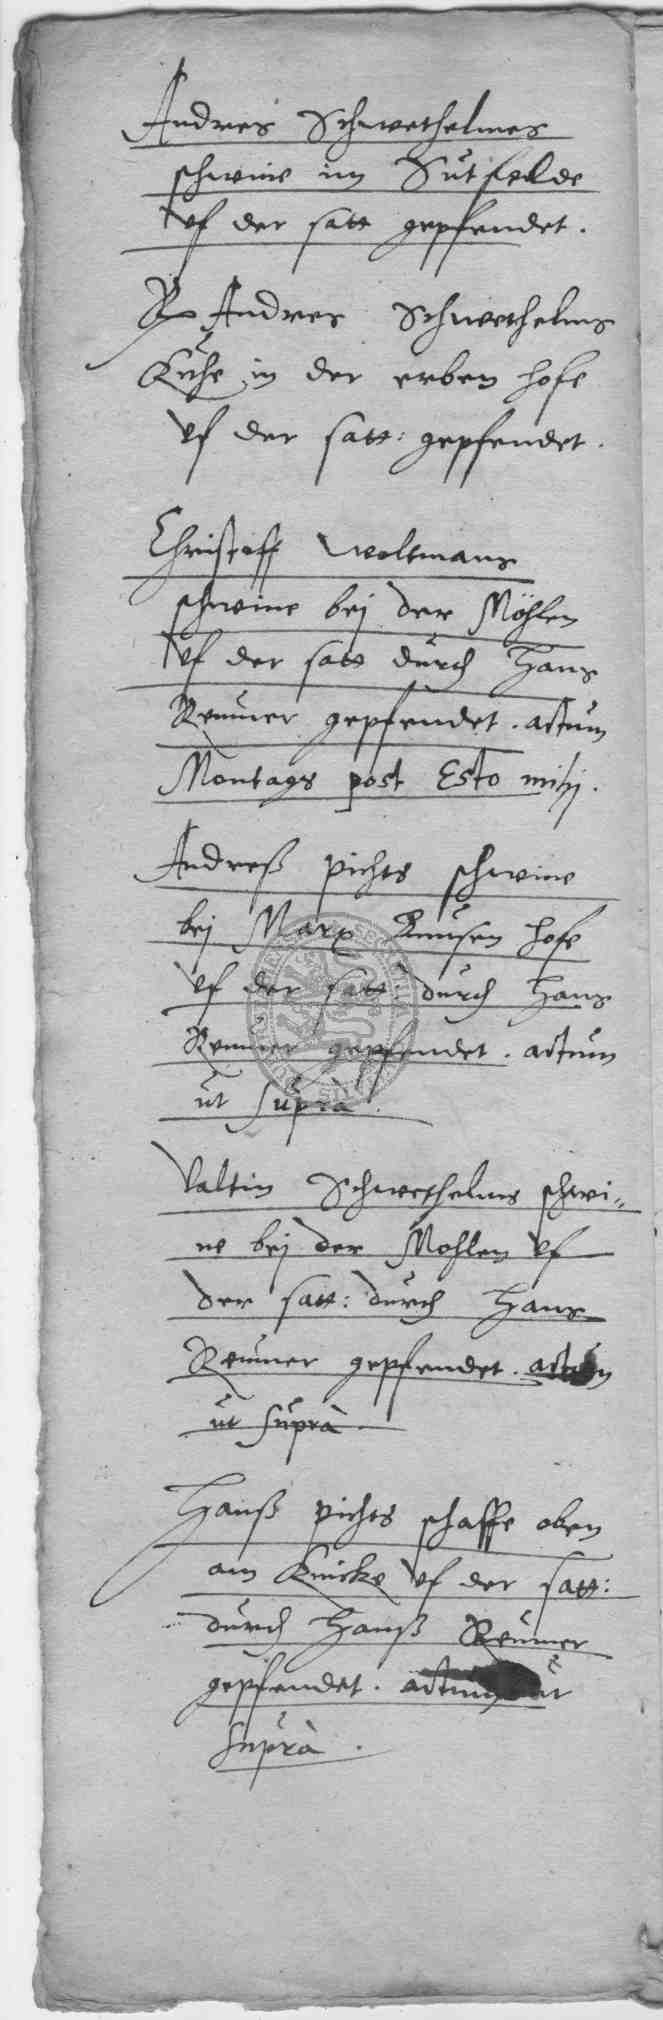 Andres Schwethelmes
schwine im Sutfelde
vf der satt gepfendet.
Andres Schwethelms
Kuhe in der erben hofe
vf der satt: gepfendet.
Christoff Woltmans
schwine bei der Möhlen
vf der satt durch Hans
Reuuer gepfendet. actum
Montags post Esto mihi.
Andreß pichts schwine
bei Marx Knusen hofe
vf der satt: durch Hans
Reuuer gepfendet. actum
ut suprà.
Valtin Schwethelms schwi„
ne bei der Mohlen vf
der satt: durch Hans
Reuuer gepfendet. actum
ut suprà
Hanß pichts schaffe oben
am Knicke vf der satt:
durch Hanß Reuuer
gepfendet. actum ut
suprà.